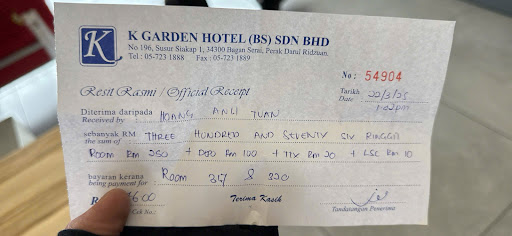 K
K GARDEN HOTEL (BS) SDN BHD
No 196, Susur Siakap 1, 34300 Bagan Serai, Perak Darul Ridzuan.
Tel : 05-723 1888 Fax : 05-723 1889
No : 54904
Resit Rasmi / Official Receipt
Tarikh
Date 22/3/25
Diterima daripada
Received by HOANG ANH TUAN
sebanyak RM THREE HUNDRED AND SEVENTY SIX RINGGIT
the sum of
ROOM RM 250 + DEPO RM 100 + TTX RM 20 + LSC RM 10
bayaran kerana
being payment for Room 317 & 320
Terima Kasih
Tandatangan Penerima